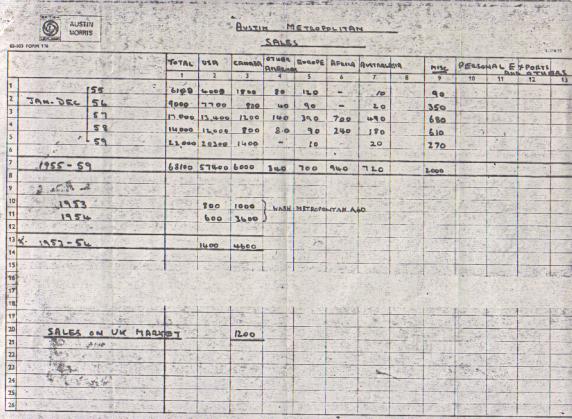 AUSTIN MORRIS
AUSTIN METROPOLITAN
SALES
TOTAL USA CANADA OTHER AMERICAS EUROPE AFRICA AUSTRALASIA MISC PERSONAL EXPORTS AND OTHERS
1 2 3 4 5 6 7 8 9 10 11 12 13
1 55 6100 4000 1800 80 120 - 10 90
2 JAN-DEC 56 9000 7700 820 40 90 - 20 350
3 57 17,000 13,400 1200 140 390 700 490 680
4 58 14,000 12,000 800 80 90 240 180 610
5 59 22,000 20300 1400 - 10 20 270
6
7 1955-59 68100 57400 6000 340 700 940 720 2000
8
9
10 1953 800 1000 NASH METROPOLITAN A40
11 1954 600 3600
12
13 1953-54 1400 4600
14
15
16
17
18
19
20 SALES ON UK MARKET 1200
21
22
23
24
25
26